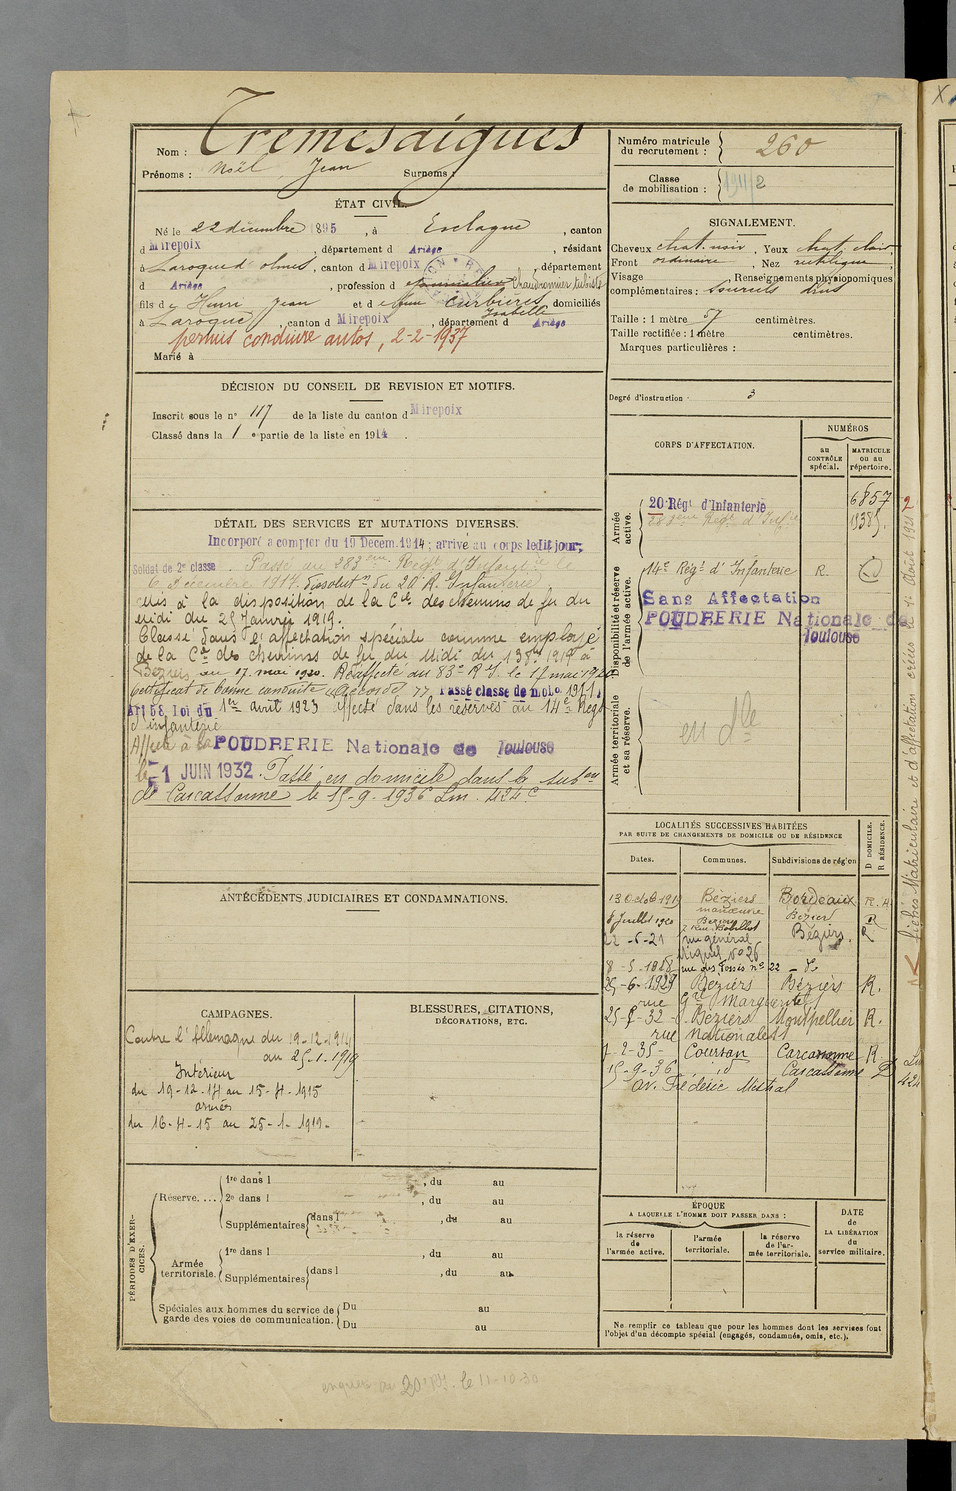 Nom : Trémesaigues
Prénoms : Noël Jean Surnoms :
ÉTAT CIVIL.
Né le 22 décembre 1895, à Esclagne, canton
d Mirepoix, département d Ariège, résidant
à Laroque d'olmes, canton d Mirepoix, département
d Ariège, profession d Chaudronnier tubiste
fils de Henri Jean et de Curbières Isabelle, domiciliés
à Laroque, canton d Mirepoix, département d Ariège
permis conduire autos, 2-2-1937
Marié à
DÉCISION DU CONSEIL DE REVISION ET MOTIFS.
Inscrit sous le n° 117 de la liste du canton d Mirepoix
Classé dans la 1 e partie de la liste en 1914.
DÉTAIL DES SERVICES ET MUTATIONS DIVERSES.
Incorporé à compter du 19 Décem. 1914; arrivé au corps ledit jour;
Soldat de 2e classe. Passé au 283 eme Regt d'Infanterie le
6 Décembre 1917. dissolutn du 20 R. Infanterie.
mis à la disposition de la Cie des chemins de fer du
midi du 25 Janvier 1919.
Classé dans l'affectation spéciale comme employé
de la Cie des chemins de fer du Midi du 1919 à
Béziers au 17 mai 1920. Réaffecté au 83e R I. le 17 mai 1920
Certificat de bonne conduite "Accordé". Passé classe de mob. 1911.
Art 58 loi du 1er avril 1923 affecté dans les réserves au 14e Régt
d'infanterie
Affecté à la POUDRERIE Nationale de Toulouse
le 1 JUIN 1932. Passé en domicile dans la subon
de Carcassonne le 15-9-1936 Lm. 424 C
ANTÉCÉDENTS JUDICIAIRES ET CONDAMNATIONS.
CAMPAGNES.
Contre l'Allemagne du 19-12-1914
au 25-1-1919
Intérieur
du 19-12-14 au 15-4-1915
armées
du 16-4-15 au 25-1-1919.
BLESSURES, CITATIONS,
DÉCORATIONS, ETC.
PÉRIODES D'EXERCICES.
Réserve....
1re dans l , du au
2e dans l , du au
Supplémentaires dans l , du au
Armée territoriale.
1re dans l , du au
Supplémentaires dans l , du au
Spéciales aux hommes du service de garde des voies de communication.
Du au
Du au
Numéro matricule du recrutement : 260
Classe de mobilisation : 1911/2
SIGNALEMENT.
Cheveux chat. noir, Yeux chat. clair
Front ordinaire, Nez rectiligne,
Visage , Renseignements physionomiques
complémentaires : Sourcils drus
Taille : 1 mètre 57 centimètres.
Taille rectifiée : 1 mètre centimètres.
Marques particulières :
Degré d'instruction 3
CORPS D'AFFECTATION.
NUMÉROS
au CONTRÔLE spécial.
MATRICULE ou au répertoire.
Armée active.
20 Régt d'Infanterie 6857
283eme Regt d'Infie
Disponibilité et réserve de l'armée active.
14e Régt d'Infanterie R.
Sans Affectation
POUDRERIE Nationale de
Toulouse
Armée territoriale et sa réserve.
en dle
LOCALITÉS SUCCESSIVES HABITÉES
PAR SUITE DE CHANGEMENTS DE DOMICILE OU DE RÉSIDENCE
Dates. Communes. Subdivisions de région D DOMICILE. R RÉSIDENCE.
13 Octob 1919 Béziers Bordeaux R.
manœuvre
6 Juillet 1920 Béziers Béziers R
7 Rue Bobillot
22-6-21 rue général Béziers. R
Miquel no 26
rue des Fossés no 22
25-6-1929 Béziers Béziers R.
rue Gal Margueritte
Béziers Montpellier R.
rue Nationale
1-2-35- Coursan Carcassonne R.
15-9-36 id Carcassonne D
av. Frédéric Mistral
ÉPOQUE
A LAQUELLE L'HOMME DOIT PASSER DANS :
la réserve de l'armée active.
l'armée territoriale.
la réserve de l'armée territoriale.
DATE de LA LIBÉRATION du service militaire.
Ne remplir ce tableau que pour les hommes dont les services font
l'objet d'un décompte spécial (engagés, condamnés, omis, etc.).
le 11-10-30